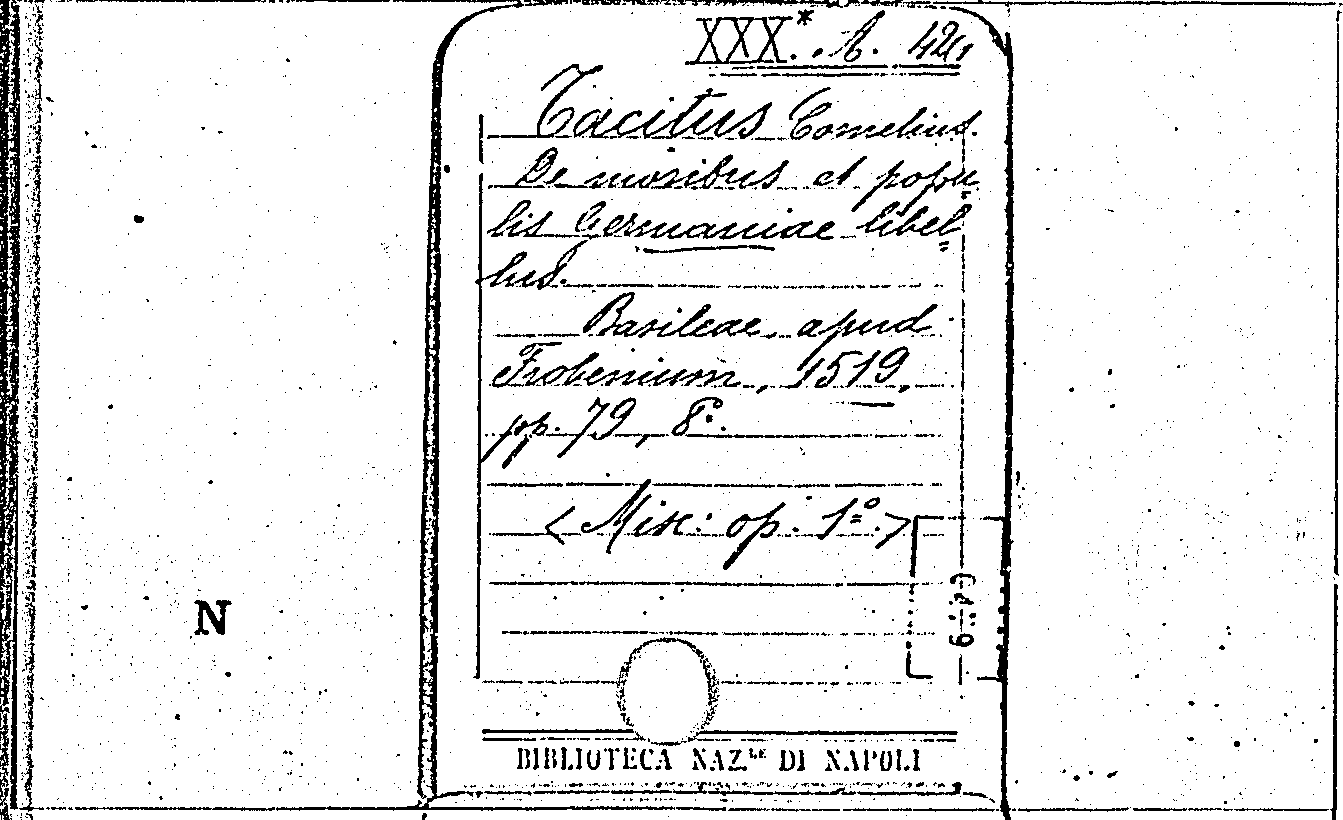 XXX.* A. 42
Tacitus Cornelius.
De moribus et popu
lis Germaniae libel=
lus.
Basileae, apud
Frobenium, 1519,
pp. 79, 8º.
< Misc: op. 1º. >
N
BIBLIOTECA NAZ.LE DI NAPOLI